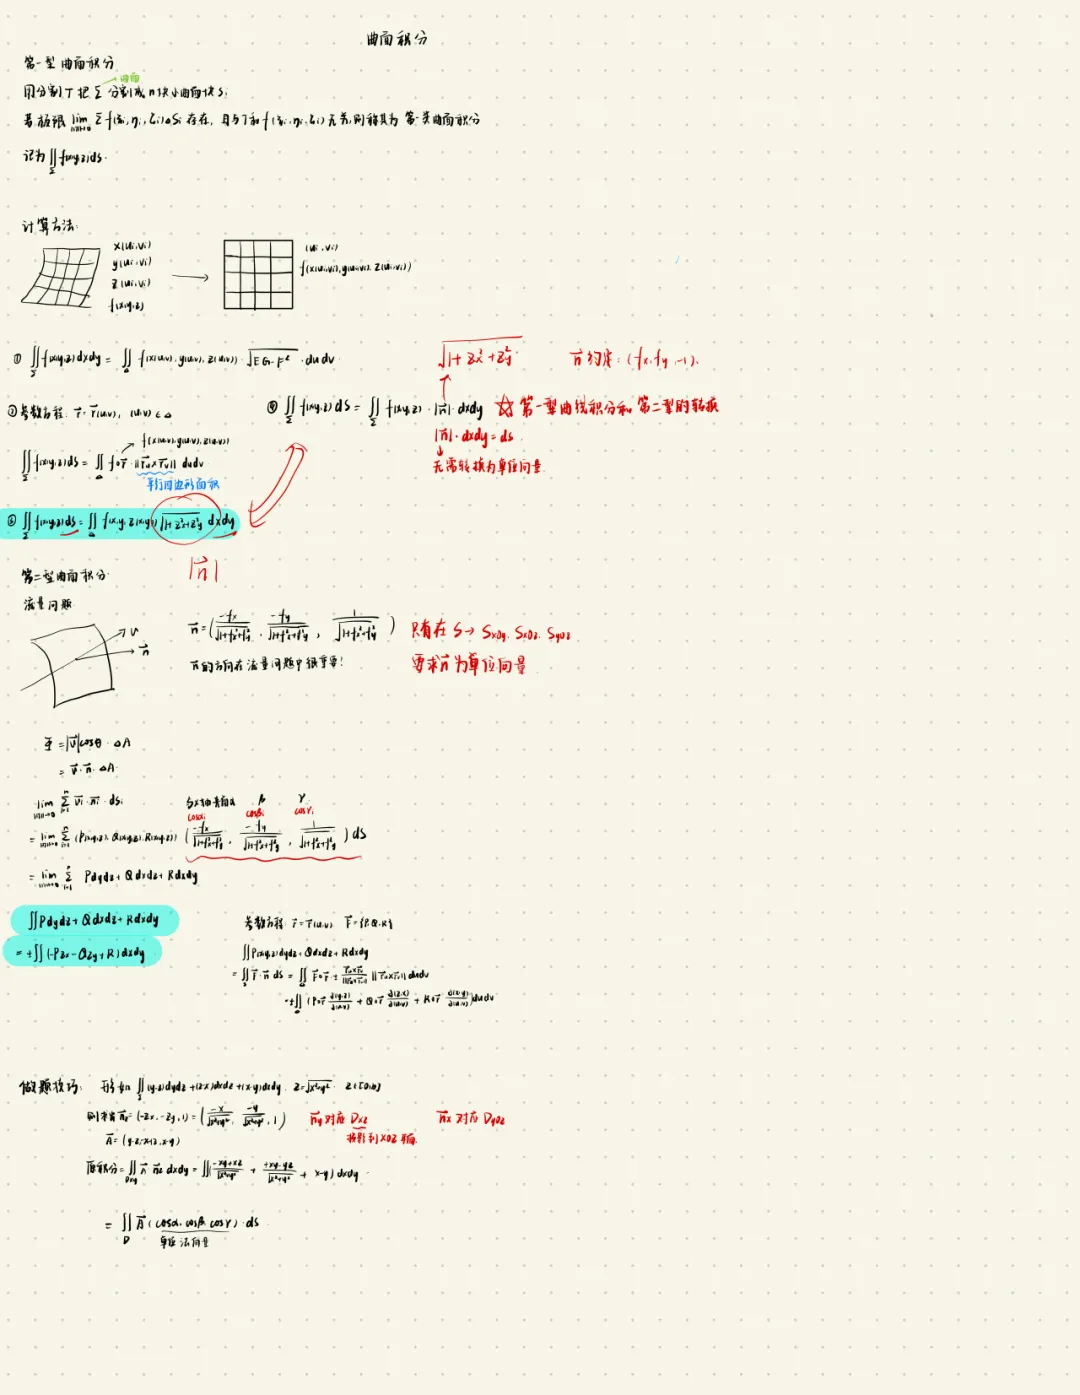 曲面积分
第一型曲面积分
曲面
用分割T把Σ分割成n块小曲面块Si
若极限 lim Σf(ξi,ηi,ζi)ΔSi 存在，且与T和f(ξi,ηi,ζi)无关,则称其为第一类曲面积分
||T||→0
记为∬f(x,y,z)ds.
Σ
计算方法:
x(ui,vi)
y(ui,vi)
z(ui,vi)
f(x,y,z)
(ui,vi)
f(x(ui,vi),y(ui,vi),z(ui,vi))
① ∬f(x,y,z)dxdy = ∬ f(x(u,v),y(u,v),z(u,v))·√EG-F² ·dudv
√1+Zx²+Zy²
n⃗约定:(fx,fy,-1).
②参数方程: r⃗=r⃗(u,v), (u,v)∈Δ
f(x(u,v),y(u,v),z(u,v))
∬f(x,y,z)ds = ∬ f∘r⃗·||r⃗u×r⃗v|| dudv
平行四边形面积
④ ∬f(x,y,z)ds = ∬ f(x,y,z)·|n⃗|·dxdy ☆第一型曲线积分和第二型的转换
|n⃗|·dxdy=ds
无需转换为单位向量
③ ∬f(x,y,z)ds = ∬ f(x,y,z(x,y))√1+Z²x+Z²y dxdy
|n⃗|
第二型曲面积分
流量问题
v
n⃗
n⃗=(-fx/√1+fx²+fy², -fy/√1+fx²+fy², 1/√1+fx²+fy²)
只有在S→Sxoy, Sxoz, Syoz
要求n⃗为单位向量
n⃗的方向在流量问题中很重要!
Φ=|v⃗|cosθ·ΔA
=v⃗·n⃗·ΔA
lim Σ v⃗i·n⃗i·dsi
与x轴夹角α β γ
cosαi cosβi cosγi
= lim Σ (P(x,y,z),Q(x,y,z),R(x,y,z)) (-fx/√1+fx²+fy², -fy/√1+fx²+fy², 1/√1+fx²+fy²) ds
= lim Σ Pdydz+Qdxdz+Rdxdy
∬Pdydz+Qdxdz+Rdxdy
=±∬(-PZx-QZy+R)dxdy
参数方程: r⃗=r⃗(u,v) F⃗={P,Q,R}
∬P(x,y,z)dydz+Qdxdz+Rdxdy
=∬F⃗·n⃗ ds = ∬F⃗∘r⃗·± r⃗u×r⃗v/||r⃗u×r⃗v|| ||r⃗u×r⃗v||dudv
=±∬(P∘r⃗ ∂(y,z)/∂(u,v) + Q∘r⃗ ∂(z,x)/∂(u,v) + R∘r⃗ ∂(x,y)/∂(u,v))dudv
做题技巧: 形如∬(y-z)dydz+(z-x)dxdz+(x-y)dxdy, z=√x²+y², z∈[0,h]
则求出n⃗z=(-Zx,-Zy,1)=(-x/√x²+y², -y/√x²+y², 1)
n⃗y对应Dxz
投影到XOZ平面.
n⃗x对应Dyoz
A⃗=(y-z,z-x,x-y)
原积分=∬A⃗ n⃗z dxdy=∬(-xy+xz/√x²+y² + +xy-yz/√x²+y² + x-y)dxdy
Dxy
=∬A⃗(cosα,cosβ,cosγ)·ds
D
单位法向量